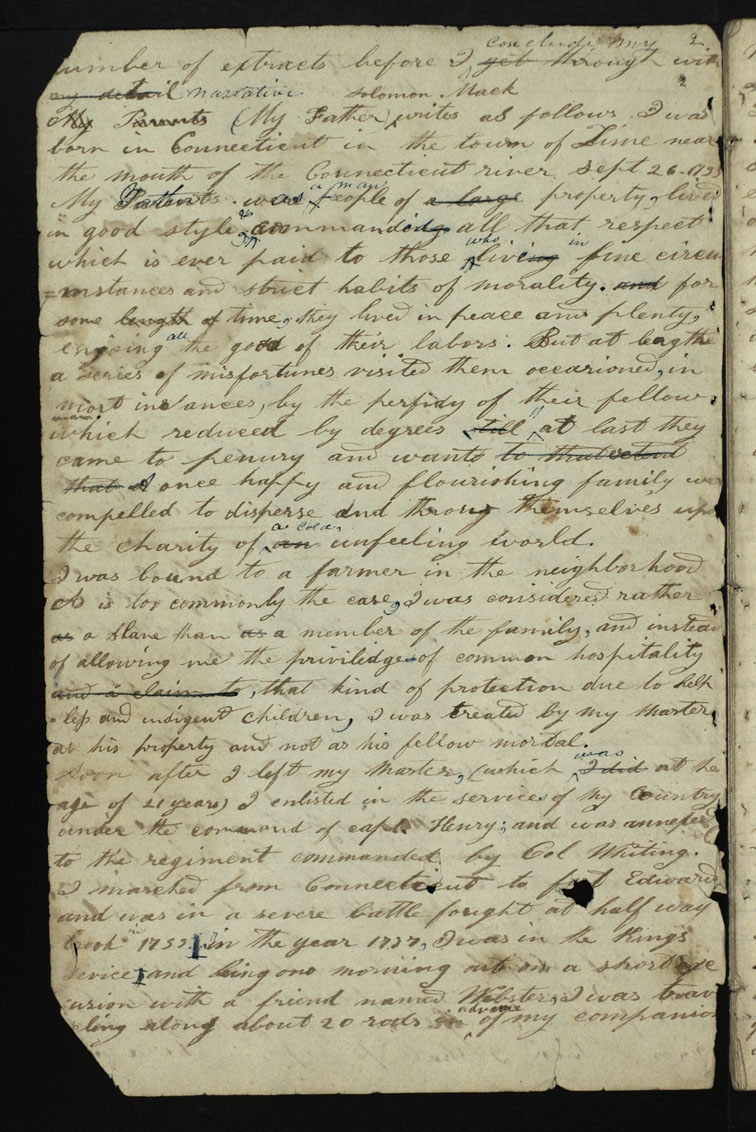 concluding my 2
number of extracts before I get through with
my detail narrative 2
solomon Mack
My Parents (My Father writes as follows. I was
born in Connecticut in the town of Lime near
the mouth of the Connecticut river Sept 26-
My was a man people of a large property, lived
in good style & commanded all that respect
which is ever paid to those who living in fine circu
=mstances and strict habits of morality. and for
some length of time, they lived in peace and plenty,
enjoing all the good of their labors. But at length
a series of misfortunes visited them occarioned, in
most instances, by the perfidy of their fellow
man.
which reduced by degrees till at last they
came to penury and wants to that extent
that A once happy and flourishing family were
compelled to disperse and throug themselves upon
the charity of a cold, an unfeeling world.
I was bound to a farmer in the neighborhood
As is too commonly the case, I was considered rather
as a slave than as a member of the family, and instead
of allowing me the priviledge of common hospitality
and a claim to, that kind of protection due to help
less and indigent children, I was treated by my master
as his property and not as his fellow mortal.
soon after I left my Master, (which was I did at the
age of 21 years) I enlisted in the services of my Country
under the command of capt. Henry; and was annexed
to the regiment commanded by Col Whiting.
I marched from Connecticut to fort Edward
and was in a severe battle fought at half way
brook in in the year 1757, I was in the Kings
service, and being one morning out on a short
cursion with a friend named Webster, I was trav
eling along about 20 rods in advance of my companion